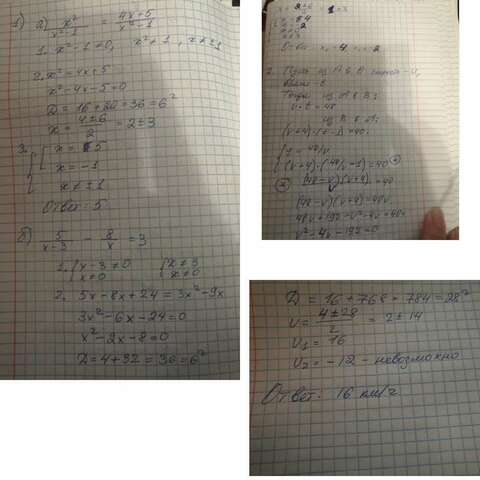 1) a) x²/(x²-1) = (4x+5)/(x²-1)
1. x²-1≠0, x²≠1, x≠±1
2. x²=4x+5
x²-4x-5=0
D=16+20=36=6²
x=(4±6)/2=2±3
3. { [ x=5
x=-1
x≠±1
Ответ: 5
б) 5/(x-3) - 8/x = 3
1. { x-3≠0 { x≠3
x≠0 x≠0
2. 5x-8x+24=3x²-9x
3x²-6x-24=0
x²-2x-8=0
D=4+32=36=6²
Ответ:
2. Пусть из А в В
Тогда из А в В:
v·t=48
из В в А:
(v+4)·(t-1)=40
{ t=48/v
(v+4)·(48/v-1)=40 *
* (48-v)(v+4)/v=40
(48-v)(v+4)=40v
48v+192-v²-4v=40v
v²-4v-192=0
D=16+768=784=28²
v=(4±28)/2=2±14
v₁=16
v₂=-12 - невозможно
Ответ: 16 км/ч